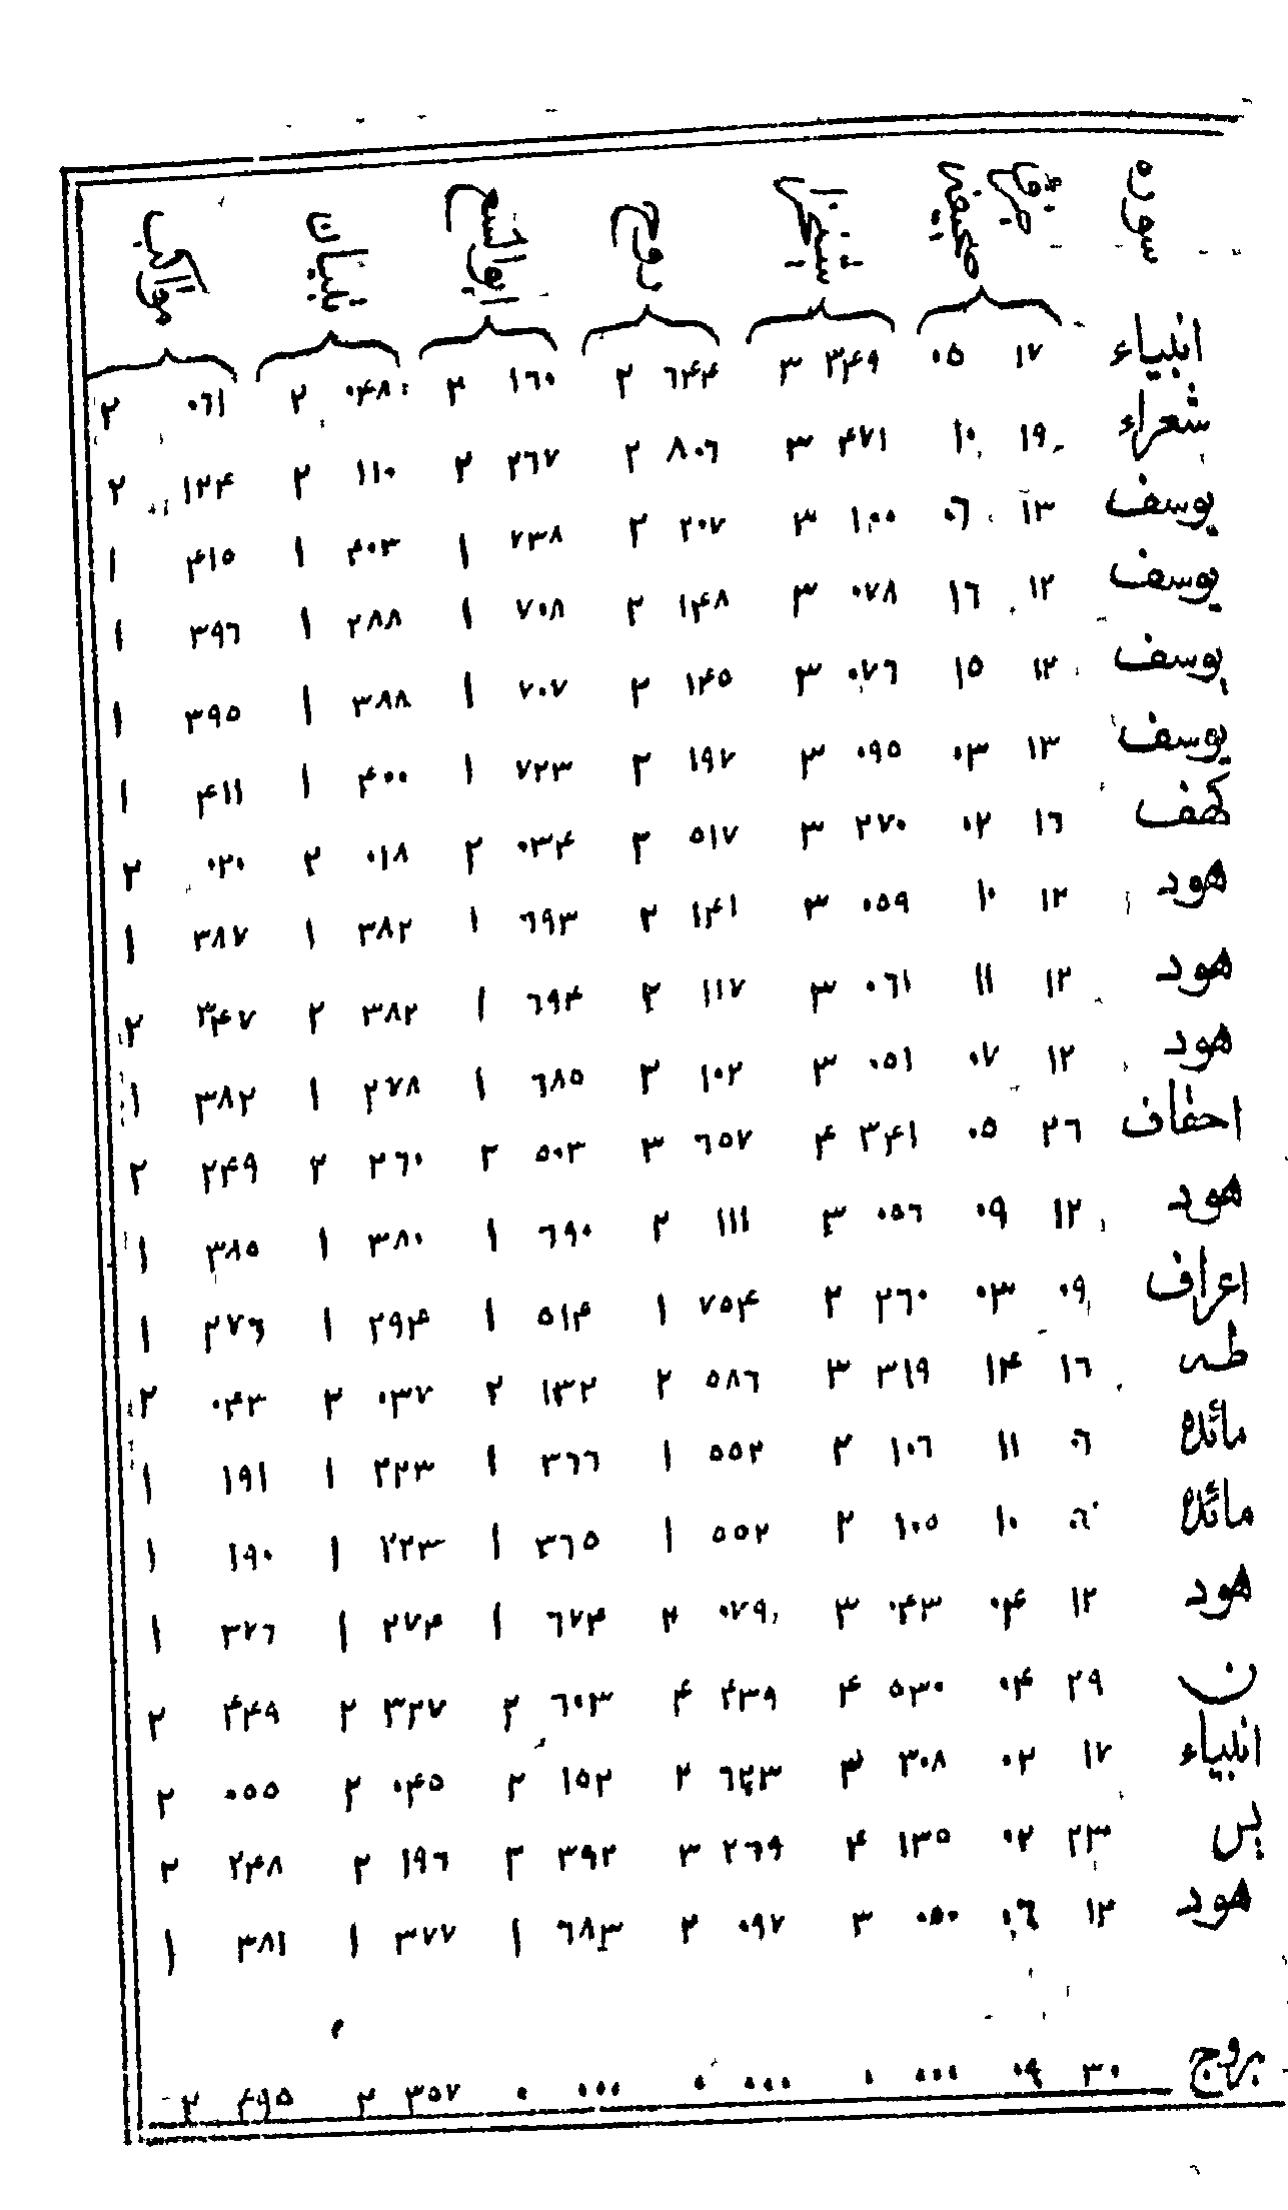 سوره صحیفه شیخ روح ابو الفتوح تبیان مواهب
انبیاء ۱۷ ۰۵ ۳۴۹ ۳ ٦۴۴ ۲ ۱٦۰ ۲ ۰۴۸ ۲ ۰٦۱ ۲
شعراء ۱۹ ۱۰ ۴۷۱ ۳ ۸۰٦ ۲ ۲٦۷ ۲ ۱۱۰ ۲ ۱۲۴ ۲
یوسف ۱۳ ۰٦ ۱۰۰ ۳ ۲۰۷ ۲ ۷۳۸ ۱ ۴۰۳ ۱ ۴۱۵ ۱
یوسف ۱۲ ۱٦ ۰۷۸ ۳ ۱۴۸ ۲ ۷۰۸ ۱ ۲۸۸ ۱ ۳۹٦ ۱
یوسف ۱۲ ۱۵ ۰۷٦ ۳ ۱۴۵ ۲ ۷۰۷ ۱ ۳۸۸ ۱ ۳۹۵ ۱
یوسف ۱۳ ۰۳ ۰۹۵ ۳ ۱۹۷ ۲ ۷۲۳ ۱ ۴۰۰ ۱ ۴۱۱ ۱
کهف ۱٦ ۰۲ ۲۷۰ ۳ ۵۱۷ ۲ ۰۳۴ ۲ ۰۱۸ ۲ ۰۲۰ ۲
هود ۱۲ ۱۰ ۰۵۹ ۳ ۱۴۱ ۲ ٦۹۳ ۱ ۳۸۲ ۱ ۳۸۷ ۱
هود ۱۲ ۱۱ ۰٦۱ ۳ ۱۱۷ ۲ ٦۹۴ ۱ ۳۸۲ ۲ ۳۴۷ ۲
هود ۱۲ ۰۷ ۰۵۱ ۳ ۱۰۲ ۲ ٦۸۵ ۱ ۲۷۸ ۱ ۳۸۲ ۱
احقاف ۲٦ ۰۵ ۳۴۱ ۴ ٦۵۷ ۳ ۵۰۳ ۲ ۲٦۰ ۲ ۲۴۹ ۲
هود ۱۲ ۰۹ ۰۵٦ ۳ ۱۱۱ ۲ ٦۹۰ ۱ ۳۸۰ ۱ ۳۸۵ ۱
اعراف ۰۹ ۰۳ ۲٦۰ ۲ ۷۵۴ ۱ ۵۱۴ ۱ ۲۹۴ ۱ ۲۷٦ ۱
طه ۱٦ ۱۴ ۳۱۹ ۳ ۵۸٦ ۲ ۱۳۲ ۲ ۰۳۷ ۲ ۰۴۳ ۲
مائده ۰٦ ۱۱ ۱۰٦ ۲ ۵۵۲ ۱ ۳٦٦ ۱ ۲۲۳ ۱ ۱۹۱ ۱
مائده ۰٦ ۱۰ ۱۰۵ ۲ ۵۵۲ ۱ ۳٦۵ ۱ ۲۲۳ ۱ ۱۹۰ ۱
هود ۱۲ ۰۴ ۰۴۳ ۳ ۰۷۹ ۲ ٦۷۴ ۱ ۲۷۴ ۱ ۳۷٦ ۱
ن ۲۹ ۰۴ ۵۳۰ ۴ ۴۳۹ ۴ ٦۰۳ ۲ ۳۲۷ ۲ ۴۴۹ ۲
انبیاء ۱۷ ۰۲ ۳۰۸ ۳ ٦۲۳ ۲ ۱۵۲ ۲ ۰۴۵ ۲ ۰۵۵ ۲
یس ۲۳ ۰۲ ۱۳۵ ۴ ۲٦۹ ۳ ۳۹۲ ۲ ۱۹٦ ۲ ۲۴۸ ۲
هود ۱۲ ۰٦ ۰۵۰ ۳ ۰۹۷ ۲ ٦۸۳ ۱ ۳۷۷ ۱ ۳۸۱ ۱
بروج ۳۰ ۰۹ ۰۰۰ ۰ ۰۰۰ ۰ ۰۰۰ ۰ ۳۵۷ ۲ ۴۹۵ ۲